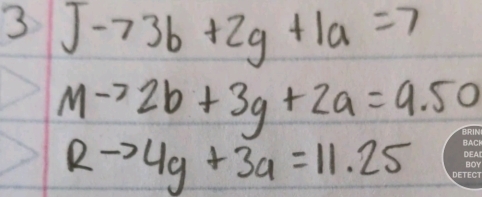 3 J→3b +2g +1a =7
M→2b + 3g + 2a = 9.50
R→4g +3a =11.25
BRING
BACK
DEAD
BOY
DETECT